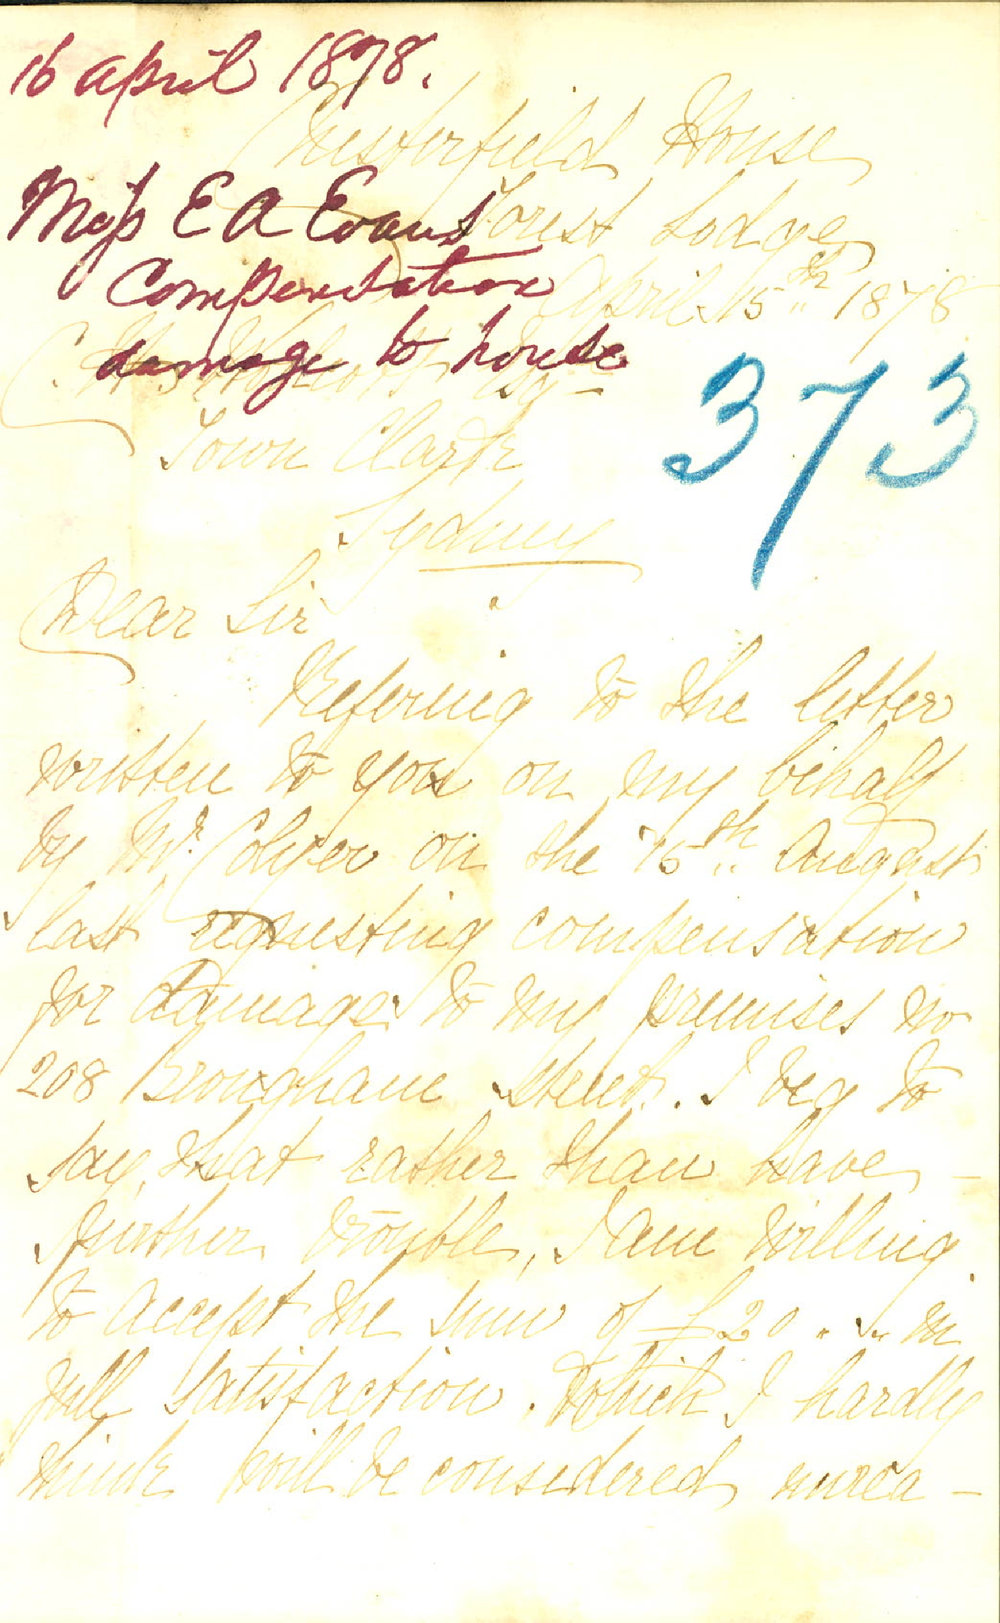 16 April 1878.
Chesterfield House
Miss E A Evans
Forest Lodge
Compensation
April 15th 1878
damage to house
373
C. H. Woolcott Esq
Town Clark
Sydney
Dear Sir
Refering to the letter
written to you on my behalf
by Mr. Colyer on the 15th August
last requesting compensation
for damage to my premises no
208 Brougham Street. I beg to
say, that rather than have
further trouble, I am willing
to accept the sum of £20 .. .. in
full satisfaction. Which I hardly
think will be considered unrea-